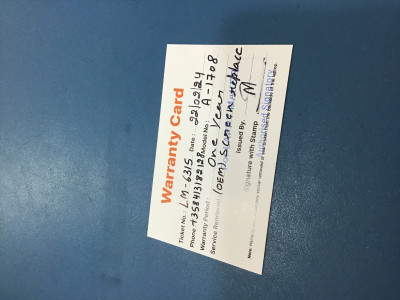 Warranty Card
Ticket No. : LM-6315 Date : 22/02/24
Phone +358413182128 Model No. : A-1708
Warranty Period : One Year
Service Rendered : (OEM) Screen replace
Issued By.
Signature with Stamp
Authorised Signatory